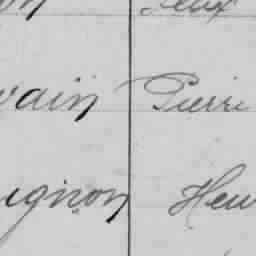 vain Pierre
ignon Hen